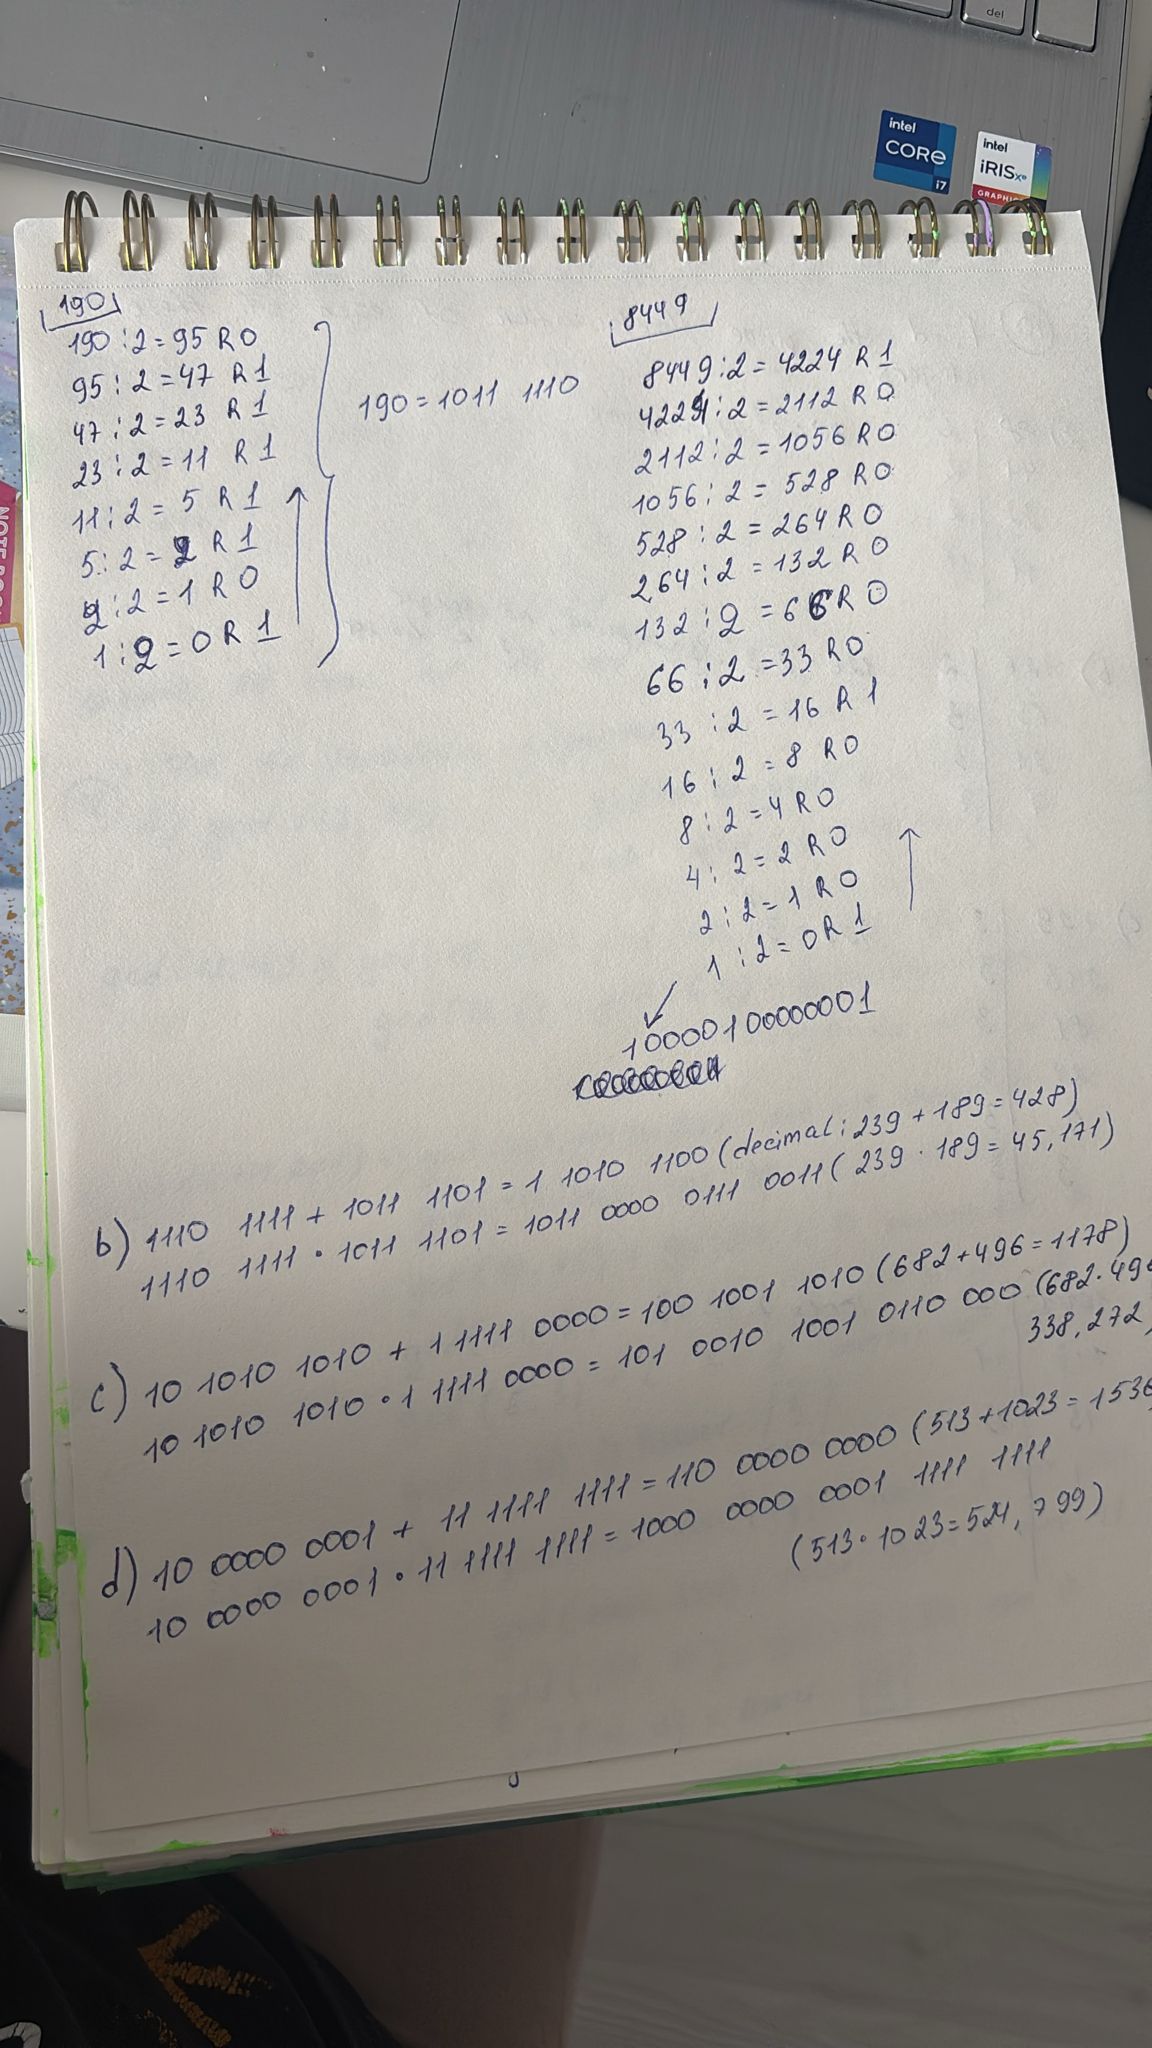 del
intel
CORE
i7
intel
iRISxe
GRAPHIC
190
190 : 2 = 95 R 0
95 : 2 = 47 R 1
47 : 2 = 23 R 1
23 : 2 = 11 R 1
11 : 2 = 5 R 1
5 : 2 = 2 R 1
2 : 2 = 1 R 0
1 : 2 = 0 R 1
190 = 1011 1110
8449
8449 : 2 = 4224 R 1
4224 : 2 = 2112 R 0
2112 : 2 = 1056 R 0
1056 : 2 = 528 R 0
528 : 2 = 264 R 0
264 : 2 = 132 R 0
132 : 2 = 66 R 0
66 : 2 = 33 R 0
33 : 2 = 16 R 1
16 : 2 = 8 R 0
8 : 2 = 4 R 0
4 : 2 = 2 R 0
2 : 2 = 1 R 0
1 : 2 = 0 R 1
10000100000001
b) 1110 1111 + 1011 1101 = 1 1010 1100 (decimal: 239 + 189 = 428)
1110 1111 • 1011 1101 = 1011 0000 0111 0011 (239 · 189 = 45,171)
c) 10 1010 1010 + 1 1111 0000 = 100 1001 1010 (682 + 496 = 1178)
10 1010 1010 • 1 1111 0000 = 101 0010 1001 0110 000 (682 · 496
338,272
d) 10 0000 0001 + 11 1111 1111 = 110 0000 0000 (513 + 1023 = 1536)
10 0000 0001 • 11 1111 1111 = 1000 0000 0001 1111 1111
(513 • 1023 = 524,799)